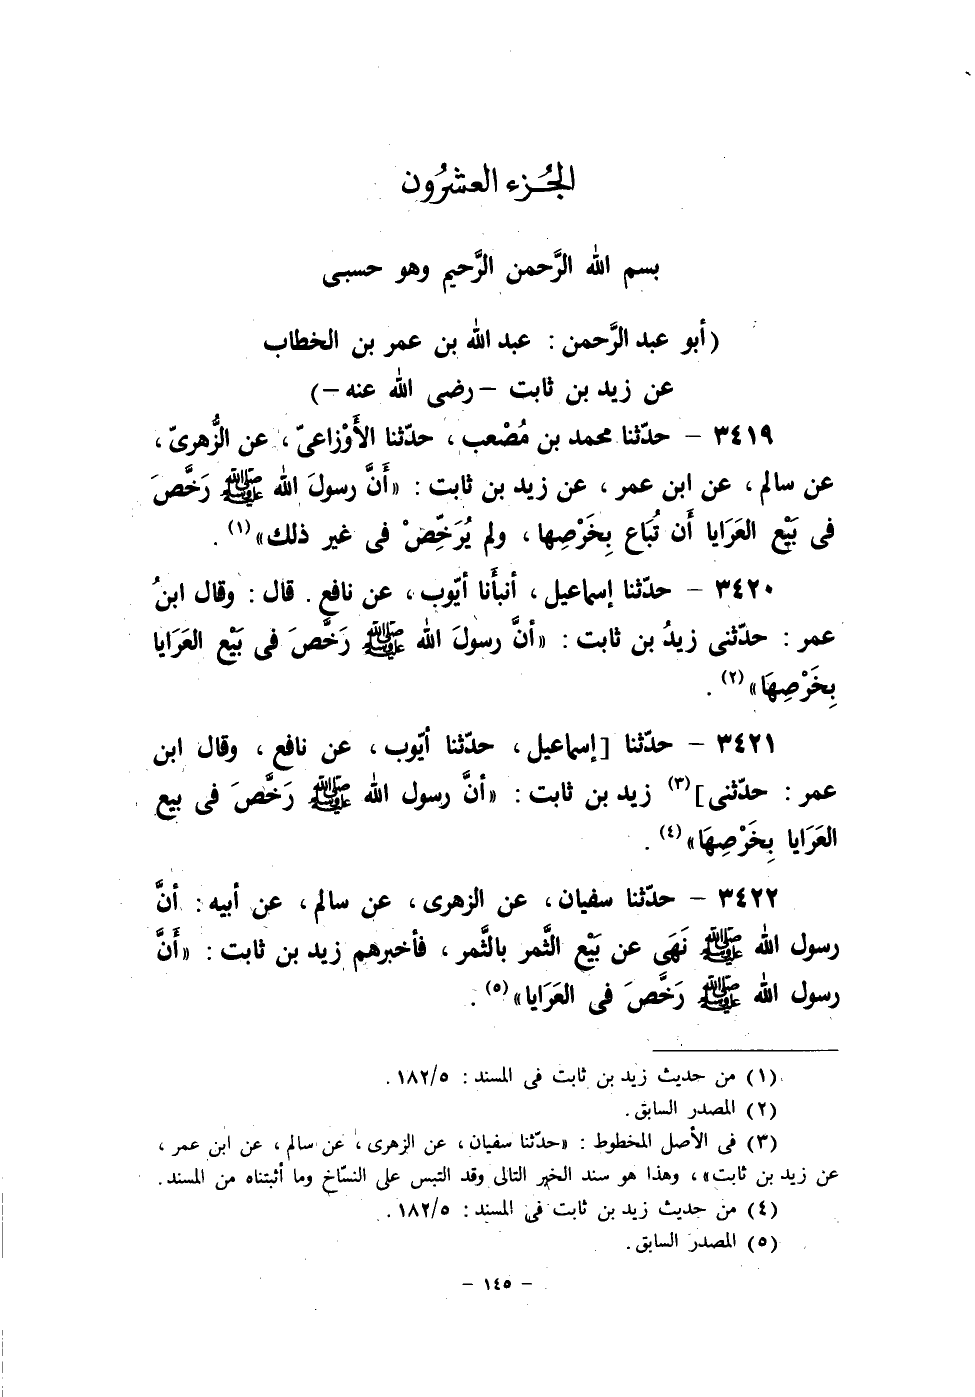 الجُزء العشرُون
بسم الله الرَّحمن الرَّحيم وهو حسبى
(أبو عبد الرَّحمن : عبد الله بن عمر بن الخطاب
عن زيد بن ثابت –رضى الله عنه–)
٣٤١٩ – حدّثنا محمد بن مُصْعب، حدّثنا الأَوْزاعىّ، عن الزُّهرىّ،
عن سالم، عن ابن عمر، عن زيد بن ثابت : «أَنَّ رسولَ الله ﷺ رَخَّصَ
فى بَيْع العَرَايا أَن تُبَاع بِخَرْصِها، ولم يُرَخِّصْ فى غير ذلك»(١) .
٣٤٢٠ – حدّثنا إسماعيل، أنبأَنا أيّوب، عن نافع. قال : وقال ابنُ
عمر : حدّثنى زيدُ بن ثابت : «أنَّ رسولَ الله ﷺ رَخَّصَ فى بَيْع العَرَايا
بِخَرْصِهَا»(٢) .
٣٤٢١ – حدّثنا [إسماعيل، حدّثنا أيّوب، عن نافع، وقال ابن
عمر : حدّثنى](٣) زيد بن ثابت : «أنَّ رسول الله ﷺ رَخَّصَ فى بيع
العَرَايا بِخَرْصِهَا»(٤) .
٣٤٢٢ – حدّثنا سفيان، عن الزهرى، عن سالم، عن أبيه : أنَّ
رسول الله ﷺ نَهَى عن بَيْع الثَّمر بالثَّمر، فأخبرهم زيد بن ثابت : «أَنَّ
رسول الله ﷺ رَخَّصَ فى العَرَايا»(٥) .
(١) من حديث زيد بن ثابت فى المسند : ١٨٢/٥ .
(٢) المصدر السابق.
(٣) فى الأصل المخطوط : «حدّثنا سفيان، عن الزهرى، عن سالم، عن ابن عمر،
عن زيد بن ثابت»، وهذا هو سند الخبر التالى وقد التبس على النسّاخ وما أثبتناه من المسند.
(٤) من حديث زيد بن ثابت فى المسند : ١٨٢/٥ .
(٥) المصدر السابق.
– ١٤٥ –